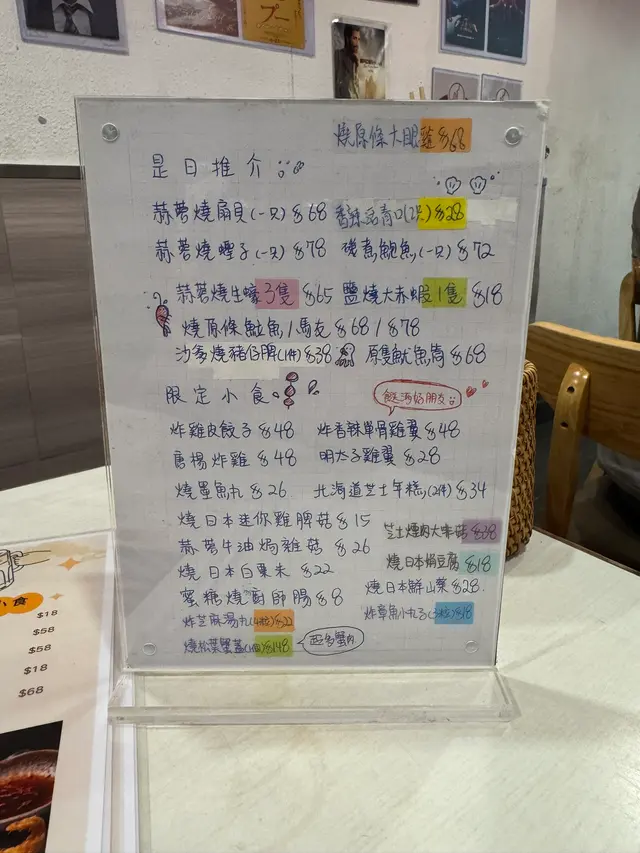 プー
燒原條大眼雞 $68
是日推介
蒜蓉燒扇貝(一只) $68 香辣煮青口(2只) $28
蒜蓉燒蟶子(一只) $78 磯煮鮑魚(一只) $72
蒜蓉燒生蠔3隻 $65 鹽燒大赤蝦1隻 $18
燒原條鱲魚/馬友 $68 / $78
沙爹燒豬仔脾(1件) $38 原隻魷魚筒 $68
限定小食
送酒好朋友
炸雞皮餃子 $48 炸香辣單骨雞翼 $48
唐揚炸雞 $48 明太子雞翼 $28
燒墨魚丸 $26 北海道芝士年糕(2件) $34
燒日本迷你雞脾菇 $15
芝士煙肉大啡菇 $38
蒜蓉牛油焗雜菇 $26
燒日本絹豆腐 $18
燒日本白粟米 $22
燒日本鮮山藥 $28
蜜糖燒廚師腸 $8
炸芝麻湯丸(4粒) $22
炸章魚小丸子(3粒) $18
燒松葉蟹蓋(1個) $148
超多蟹肉
小食
$18
$58
$58
$18
$68